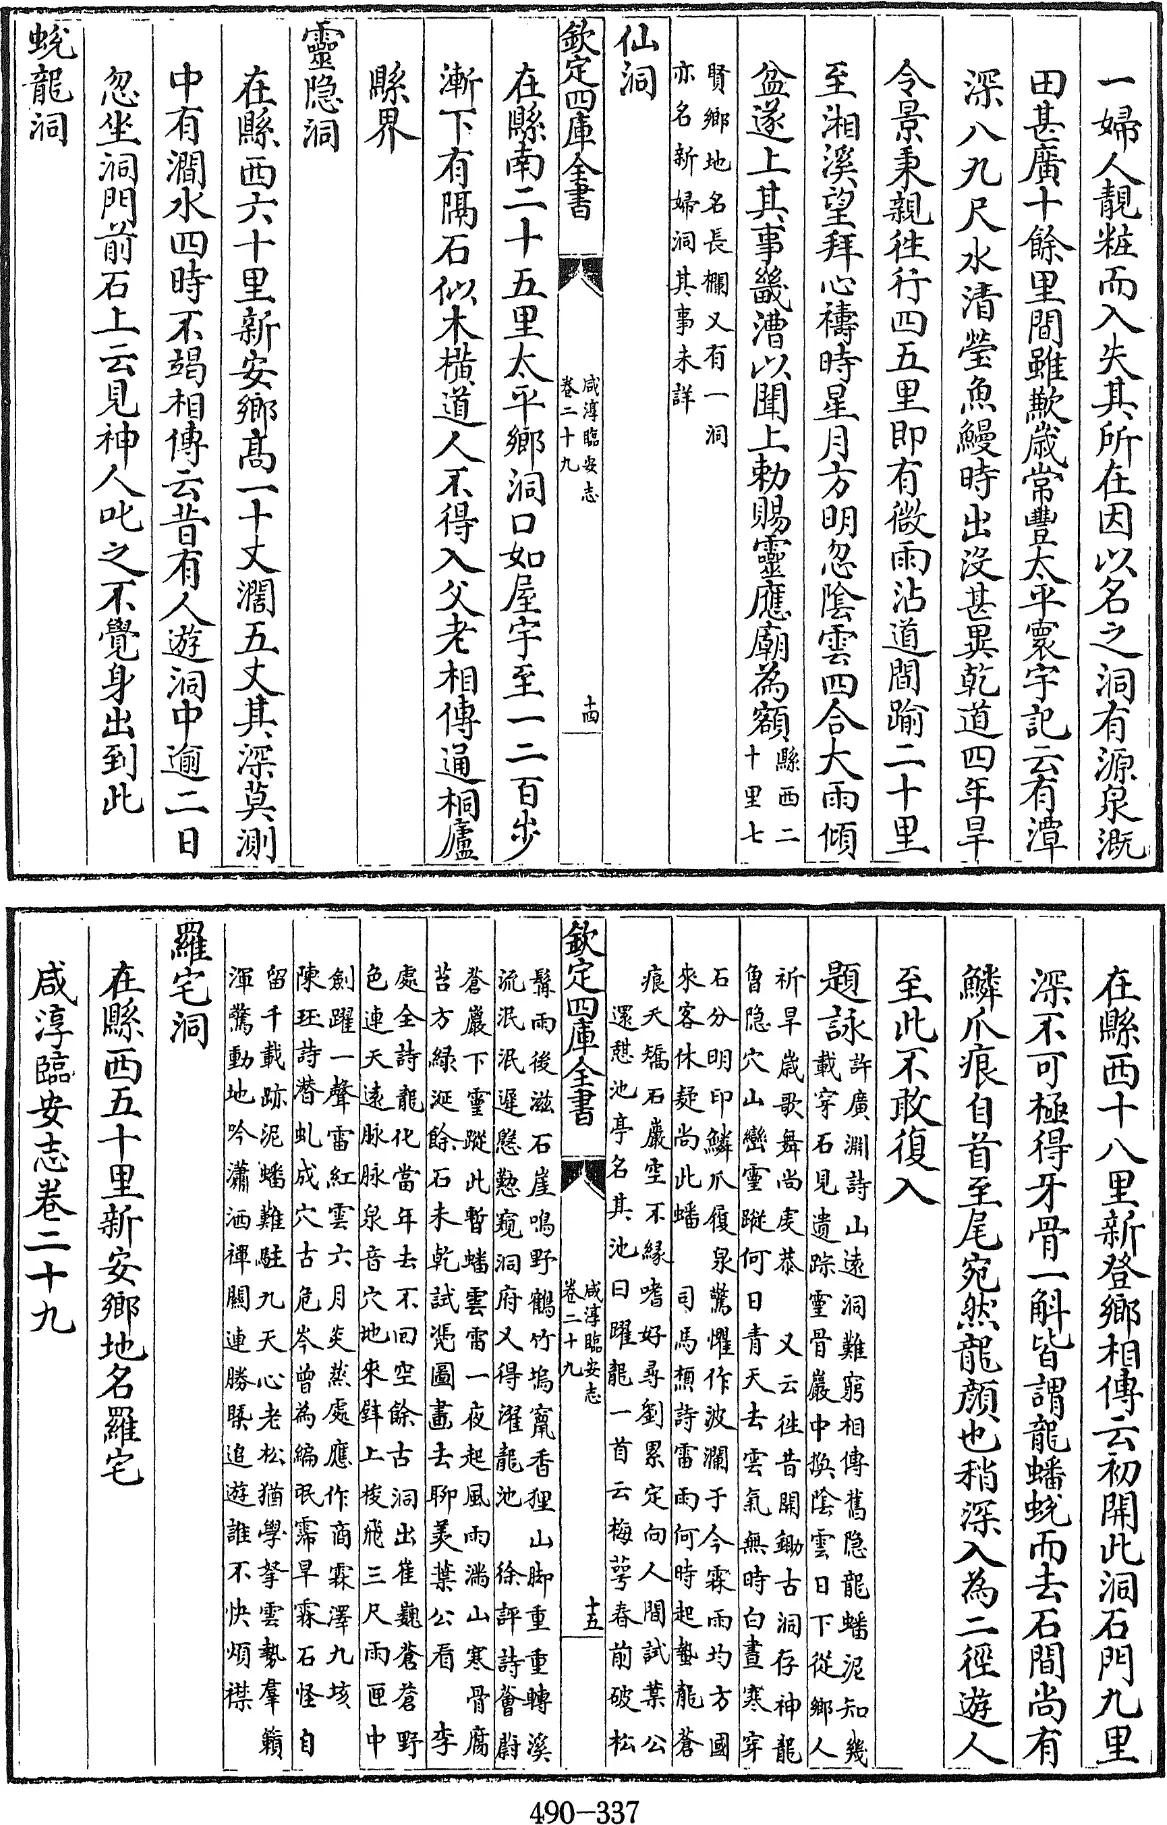 一婦人靚粧而入失其所在因以名之洞有源泉溉
田甚廣十餘里間雖歉歲常豐太平寰宇記云有潭
深八九尺水清瑩魚鰻時出沒甚異乾道四年旱
令景秉親徃行四五里即有微雨沾道間踰二十里
至湘溪望拜心禱時星月方明忽陰雲四合大雨傾
盆遂上其事畿漕以聞上勅賜靈應廟為額縣西二
十里七
賢鄉地名長欄又有一洞
亦名新婦洞其事未詳
仙洞
欽定四庫全書
咸淳臨安志
卷二十九
十四
在縣南二十五里太平鄉洞口如屋宇至一二百步
漸下有隔石似木橫道人不得入父老相傳通桐廬
縣界
靈隱洞
在縣西六十里新安鄉高一十丈濶五丈其深莫測
中有澗水四時不竭相傳云昔有人遊洞中逾二日
忽坐洞門前石上云見神人叱之不覺身出到此
蛻龍洞
在縣西十八里新登鄉相傳云初開此洞石門九里
深不可極得牙骨一斛皆謂龍蟠蛻而去石間尚有
鱗爪痕自首至尾宛然龍顔也稍深入為二徑遊人
至此不敢復入
題詠許廣淵詩山遠洞難窮相傳舊隐龍蟠泥知幾
載穿石見遺踪靈骨巖中換陰雲日下從鄉人
祈旱歲歌舞尚虔恭 又云徃昔開鋤古洞存神龍
曾隐穴山巒靈蹤何日青天去雲氣無時白晝寒穿
石分明印鱗爪履泉驚懼作波瀾于今霖雨均方國
來客休疑尚此蟠 司馬槱詩雷雨何時起蟄龍蒼
痕天矯石巖空不緣嗜好尋劉累定向人間試葉公
還憇池亭名其池曰躍龍一首云梅萼春前破松
欽定四庫全書
咸淳臨安志
卷二十九
十五
鬅雨後滋石崖鳴野鶴竹塢竄香狸山脚重重轉溪
流泯泯遲慇懃窺洞府又得濯龍池 徐評詩薈蔚
蒼巖下靈蹤此暫蟠雲雷一夜起風雨滿山寒骨腐
苔方綠涎餘石未乾試凴圖畫去聊羙葉公看 李
處全詩龍化當年去不回空餘古洞出崔巍蒼蒼野
色連天遠脉脉泉音穴地來鋅上梭飛三尺雨匣中
劍躍一聲雷紅雲六月炎蒸處應作商霖澤九垓
陳珏詩潛虬成穴古危岑曾為編氓霈旱霖石怪自
留千載跡泥蟠難駐九天心老松猶學拏雲勢羣籟
渾驚動地吟瀟洒禪關連勝槩追遊誰不快煩襟
羅宅洞
在縣西五十里新安鄉地名羅宅
咸淳臨安志卷二十九
490-337